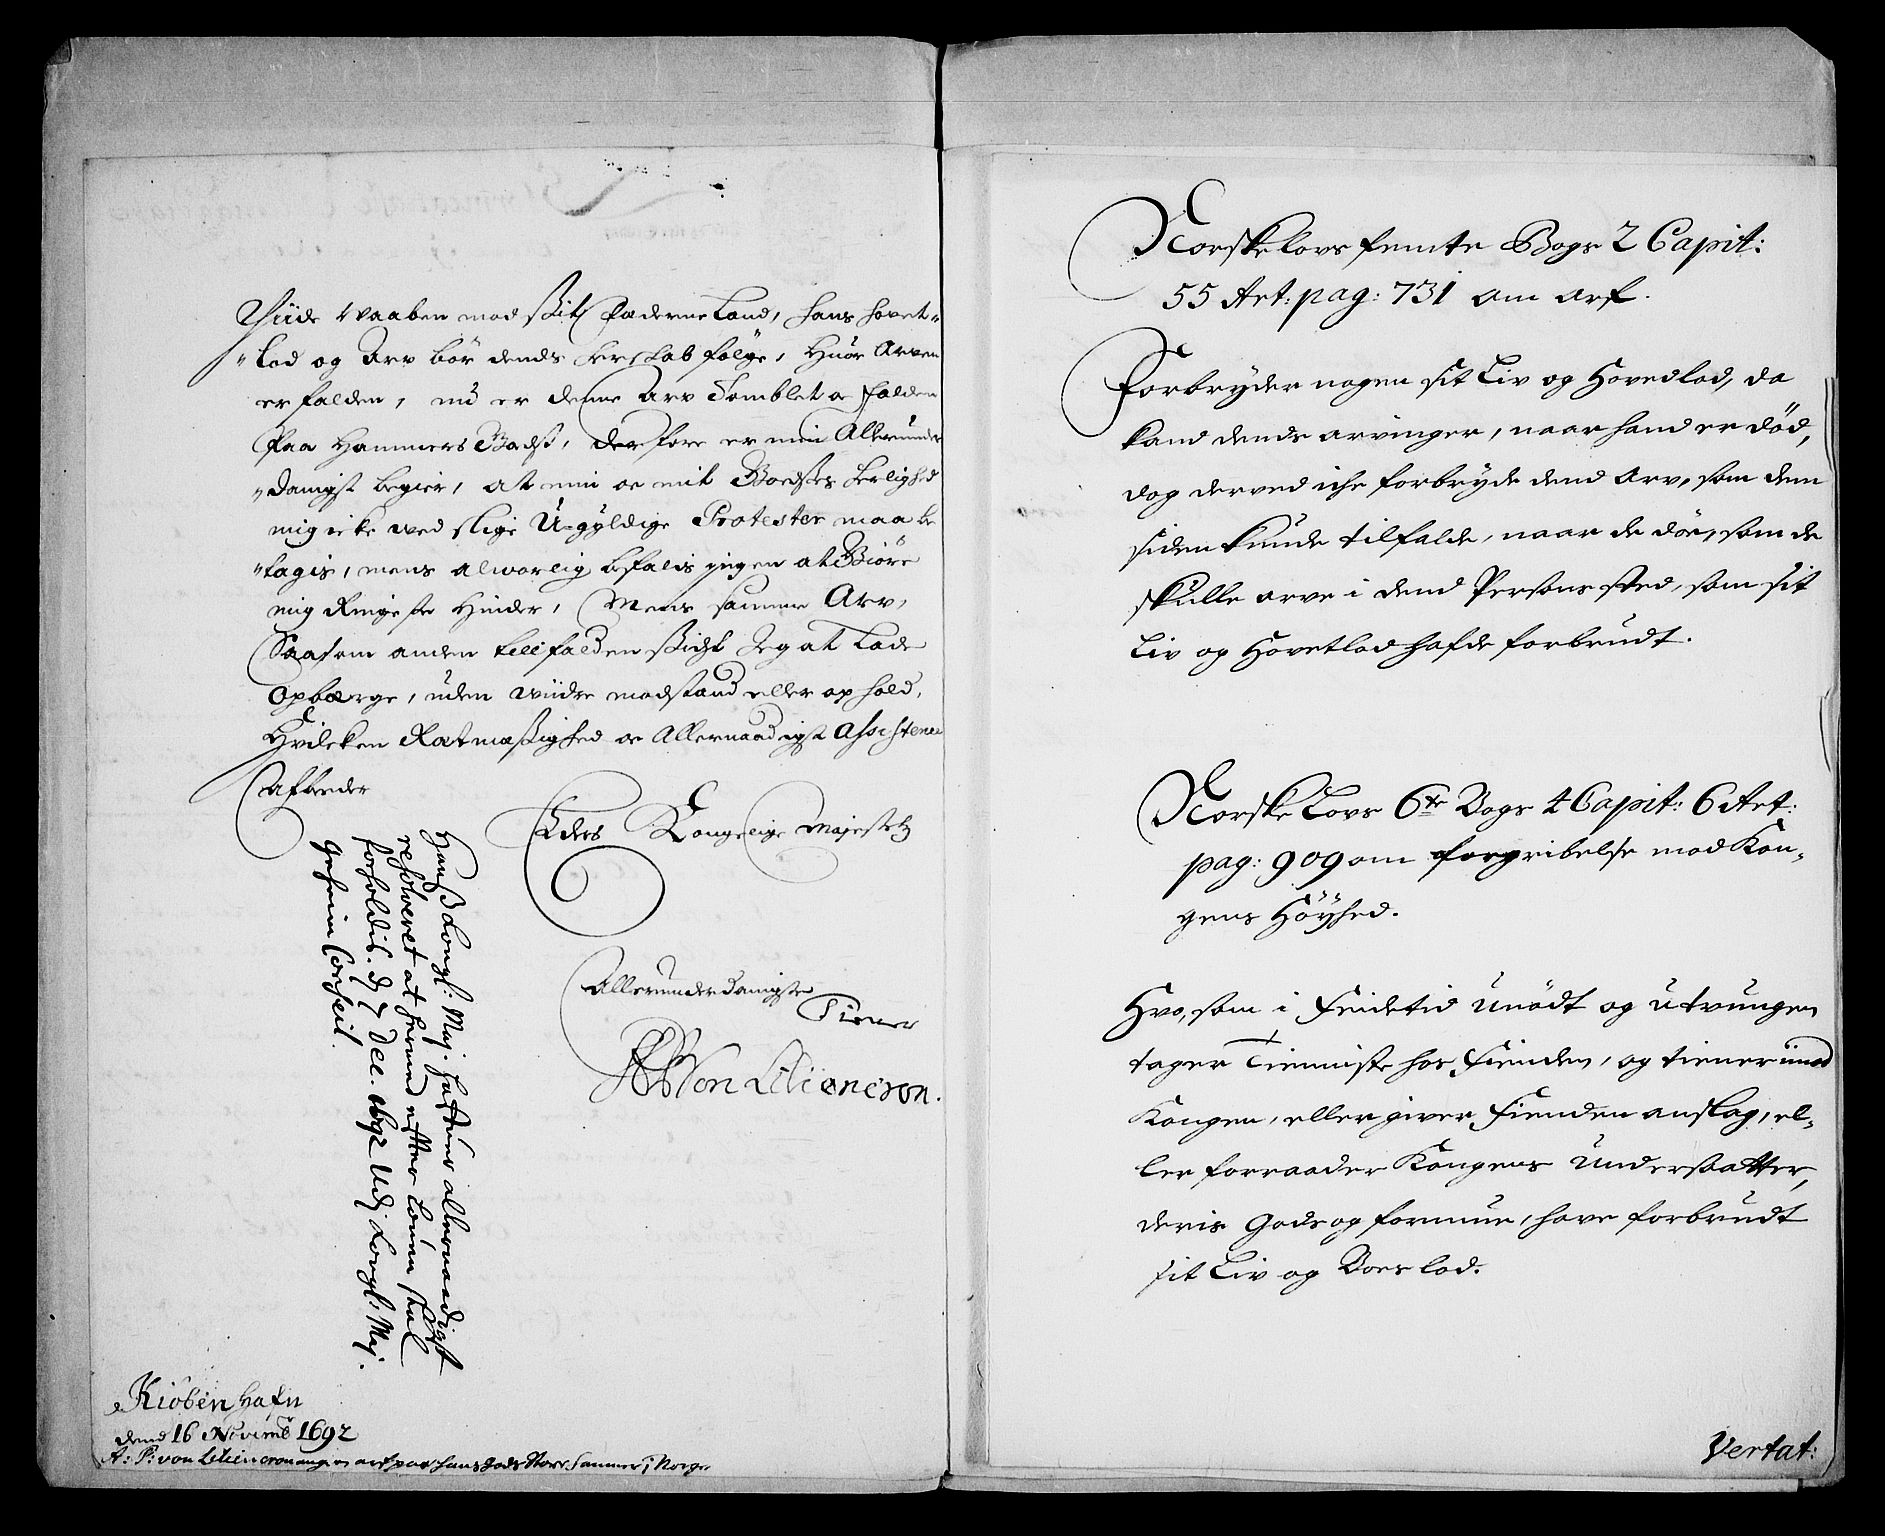 Vaaben mod sit fæderneland, hans hovet-
lod og Arv bör dends herskab fölge, Huor Arven
er falden, nu er denne Arv Samblet oc falden
paa Hammers Godss, derfore er min Allerunder
danigst begier, at min oc mit Godses herlighed
mig icke ved slige U-gyldige Protester maa be
tagis, mens alvorlig befalis ingen at Giöre
mig Ringeste Hinder, Mens samme Arv,
Saasom anden tillfalden Jeg at Lade
opbærge, uden viidre modstand eller ophold,
Hvilcken Rætmæssighed oc Allernaadigst Assistence
afbeder
Eders Kongelige Majestetz
Allerunderdanigste
Tiener
von Liliencron.
Hanss Kongl: Maj. hafuer allernaadigst
resolveret at hermed efter Louen skal
forholdis. d. 7 Dec. 1692 Udj Kongl: Maj.
geheim Conseil.
Kiöbenhafn
dend 16 Novemb 1692
A: P: von Liliencron ang: en arf paa hans gods Store Hammer i Norge
Norske Lovs femte Bogs 2 Capit:
55 Art: pag: 731 om Arf.
Forbryder nogen sit Liv og Hovedlod, da
kand dends arvinger, naar hand er död,
dog derved iche forbryde dend Arv, som dem
siden kunde tilfalde, naar de döe, som de
skulle arve i dend Persons sted, som sit
Liv og Hovetlod hafde forbrudt.
Norske Lovs 6te Bogs 4 Capit: 6 Art:
pag: 909 om forgribelse mod Kon-
gens Höyhed.
Hvo, som i Feidetid unödt og utvungen
tager Tienniste hos Fienden, og tiener imod
Kongen, eller giver Fienden anslag, el-
ler forraader Kongens Undersaatter,
deris Gods og formue, have forbrudt
sit Liv og Boeslod.
Vertat: